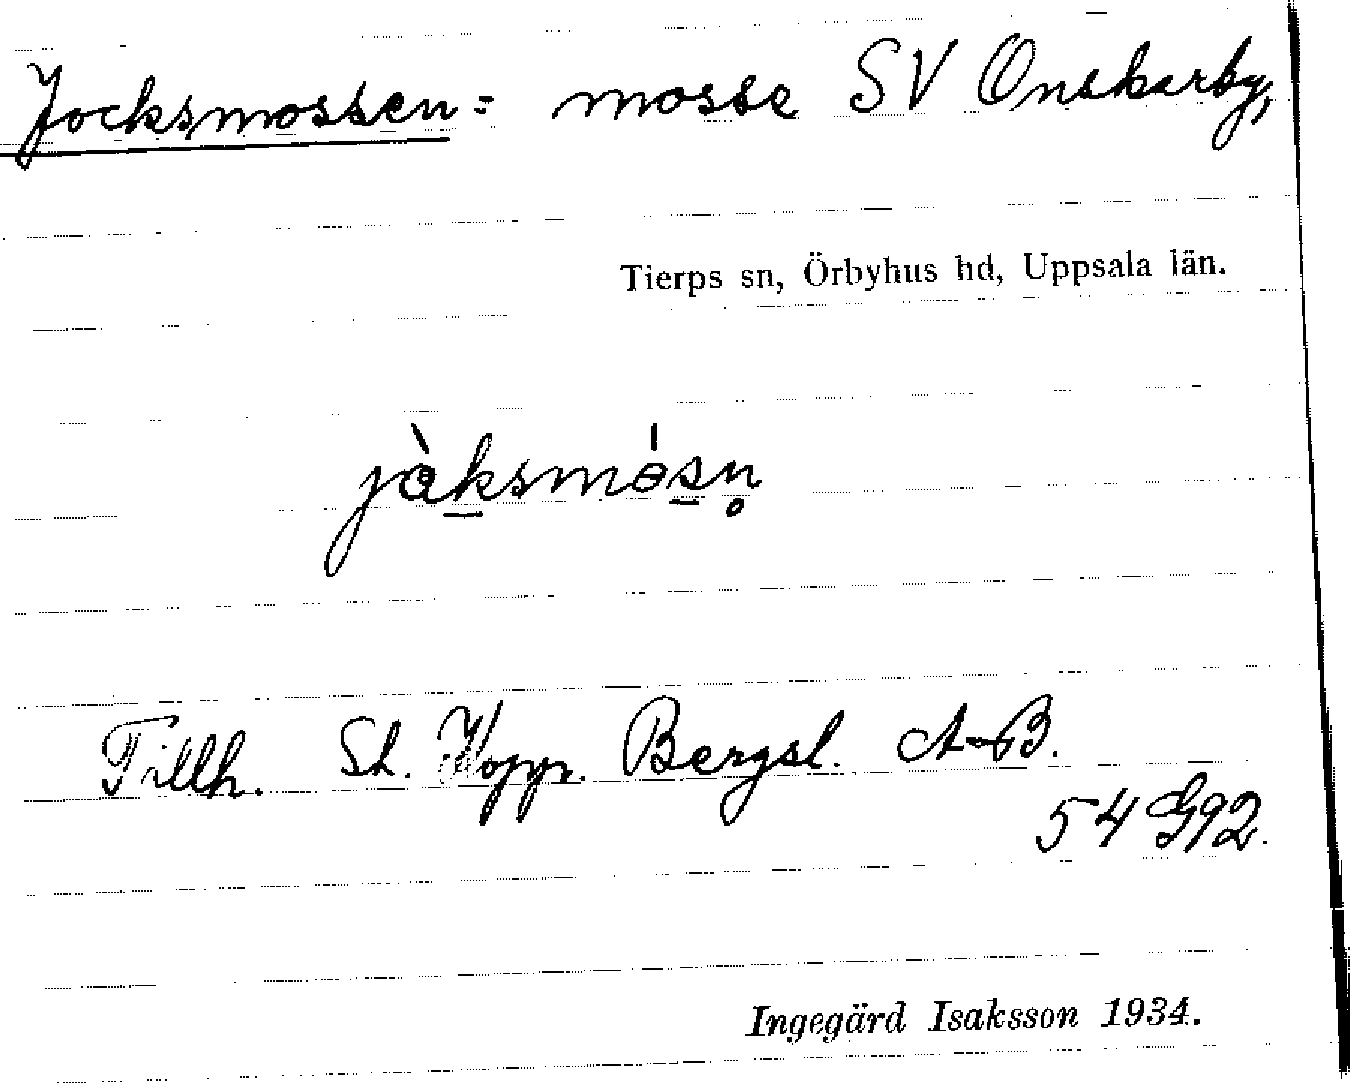 Jocksmossen = mosse SV Onskarby,
Tierps sn, Örbyhus hd, Uppsala län.
Tillh. St. Kopp. Bergsl. A-B.
54 G92.
Ingegärd Isaksson 1934.